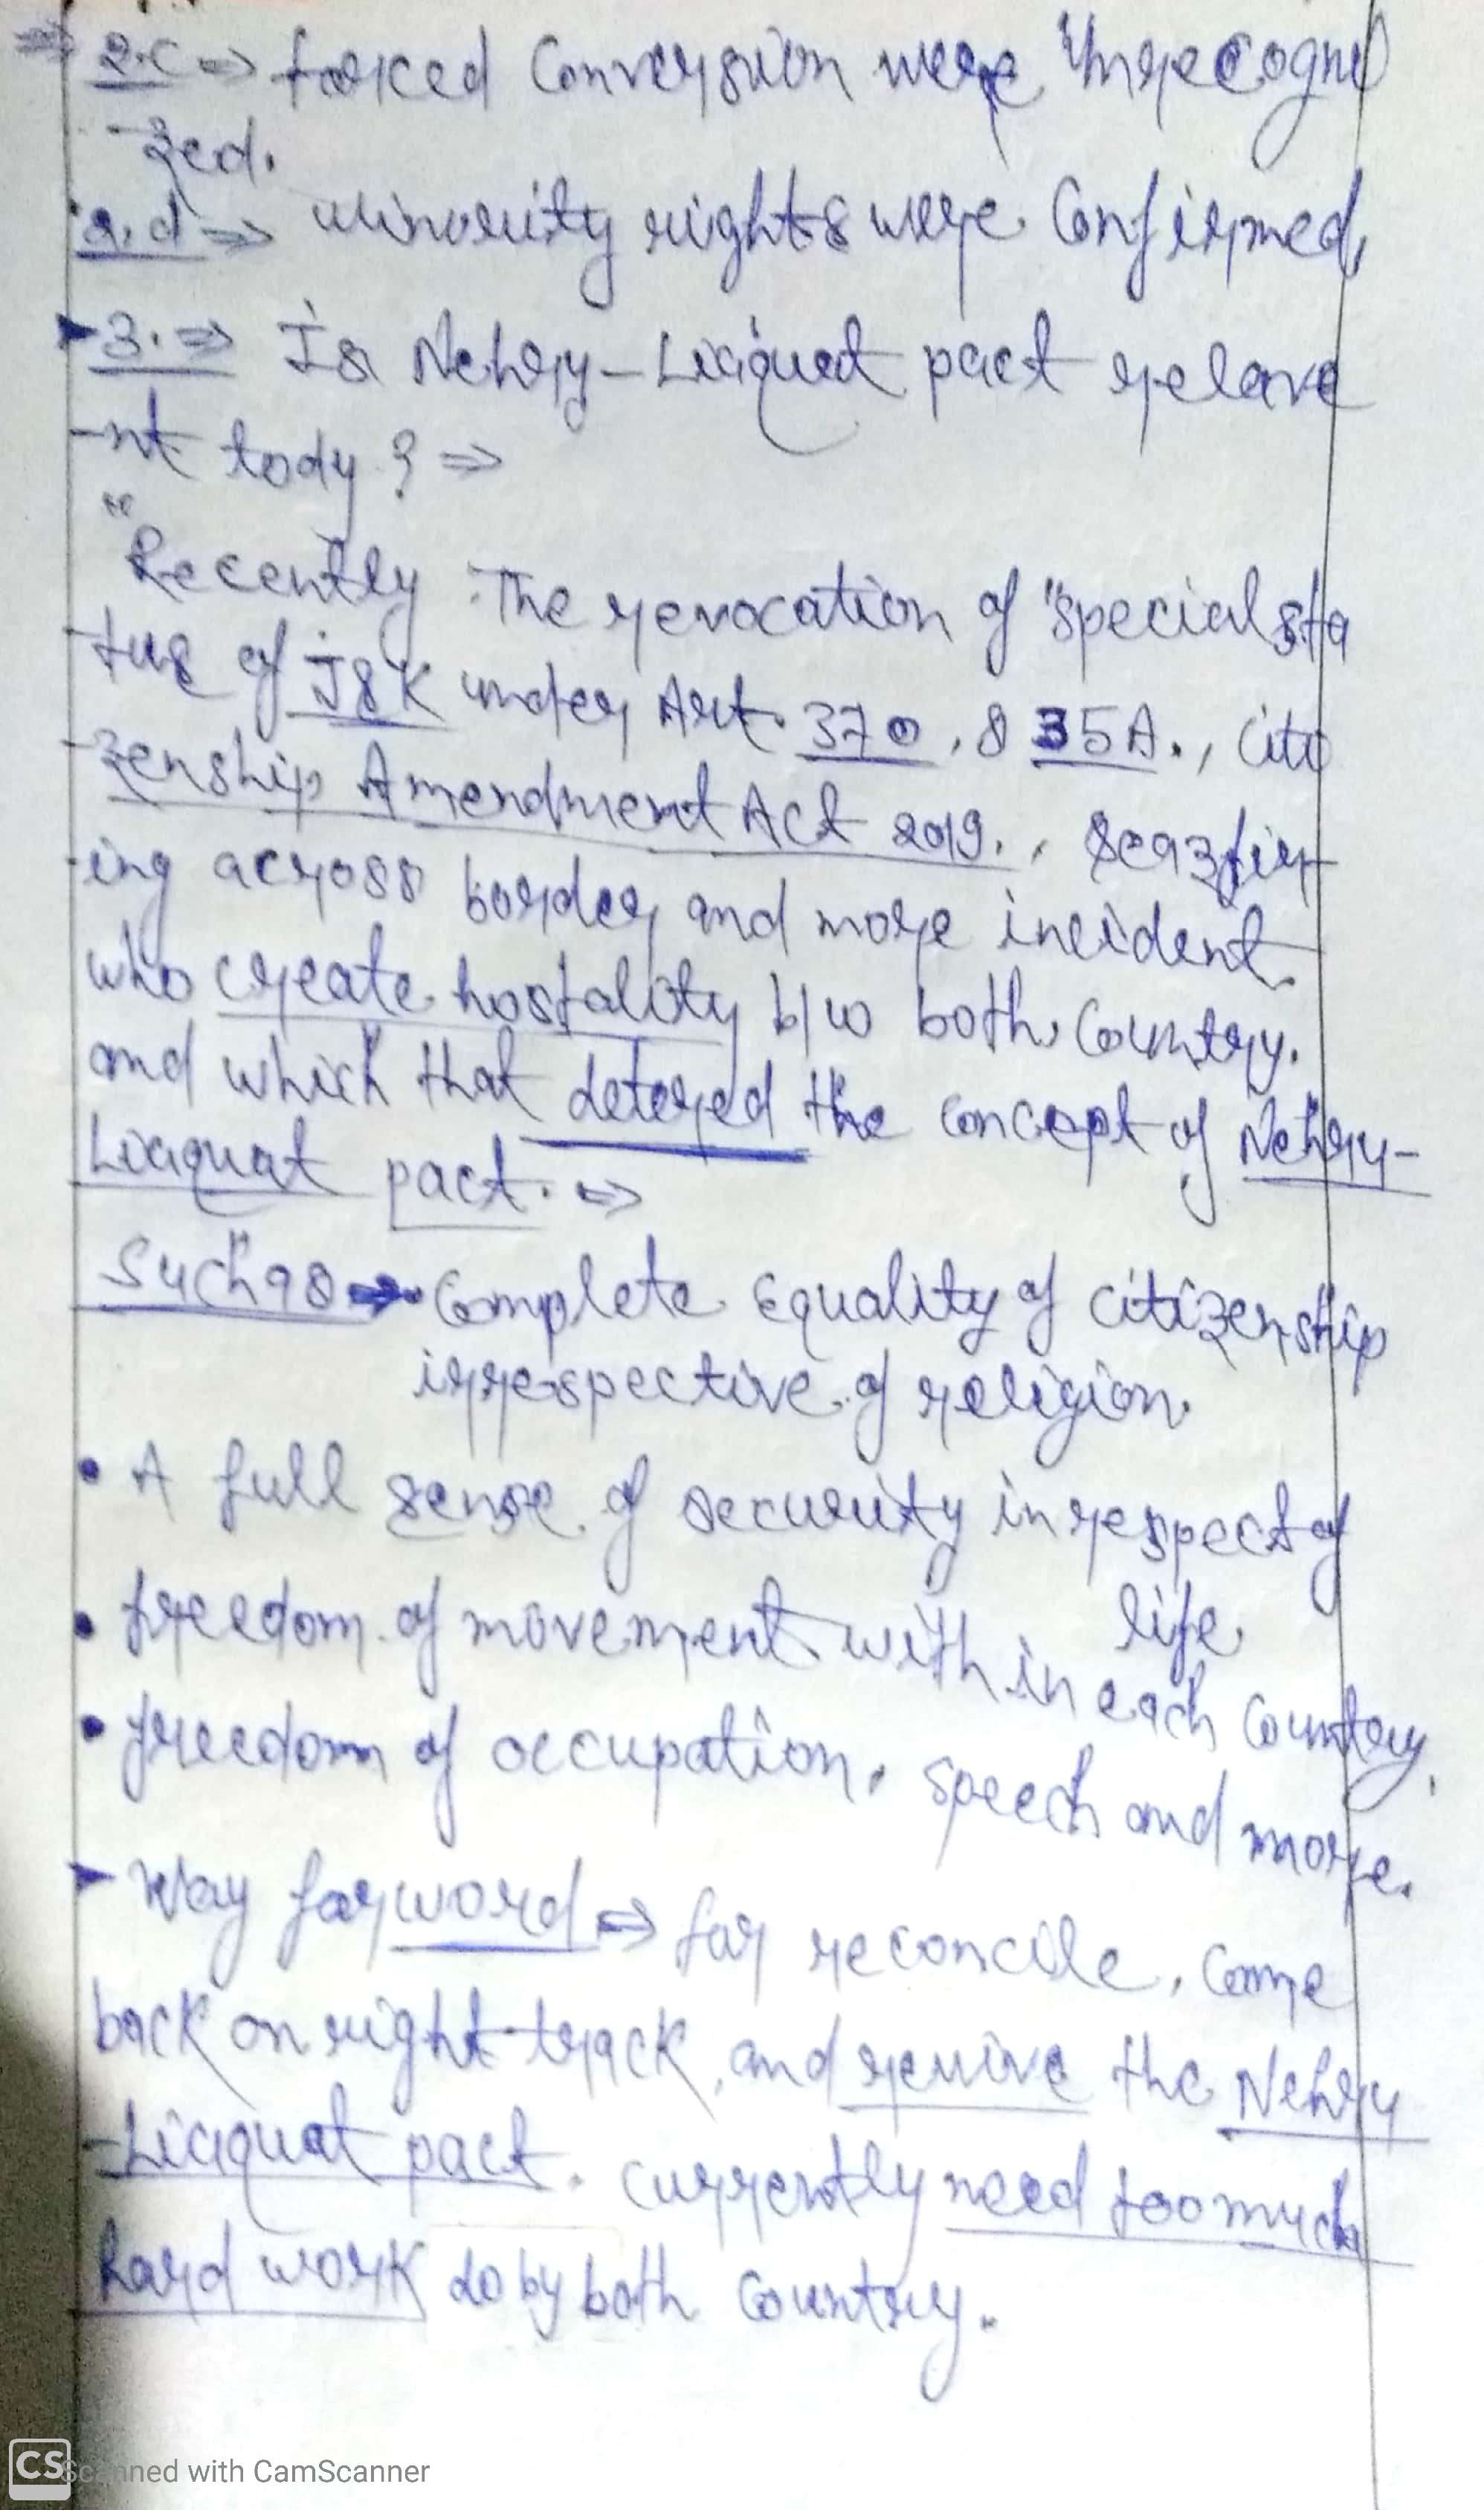 ⇒ 2.c ⇒ forced Conversion were Unrecogni
-zed.
2.d ⇒ minority rights were Confirmed,
3. ⇒ Is Nehru-Liaquat pact relava
-nt tody ? ⇒
"Recently The revocation of "special sta
-tus of J&K under Art. 370, & 35A., Citi
-zenship Amendment Act 2019.,
-ing across border and more incident
who create hostality b/w both Country.
and which that detered the concept of Nehru-
Liaquat pact. ⇒
Such as → Complete Equality of citizenship
irrespective of religion.
• A full sense of security in respect of
life
• freedom of movement within each Country.
• freedom of occupation, speech and more.
Way forword ⇒ for reconcile, Come
back on right track, and revive the Nehru
-Liaquat pact. Currently need too much
hard work do by both Country.
CS Scanned with CamScanner